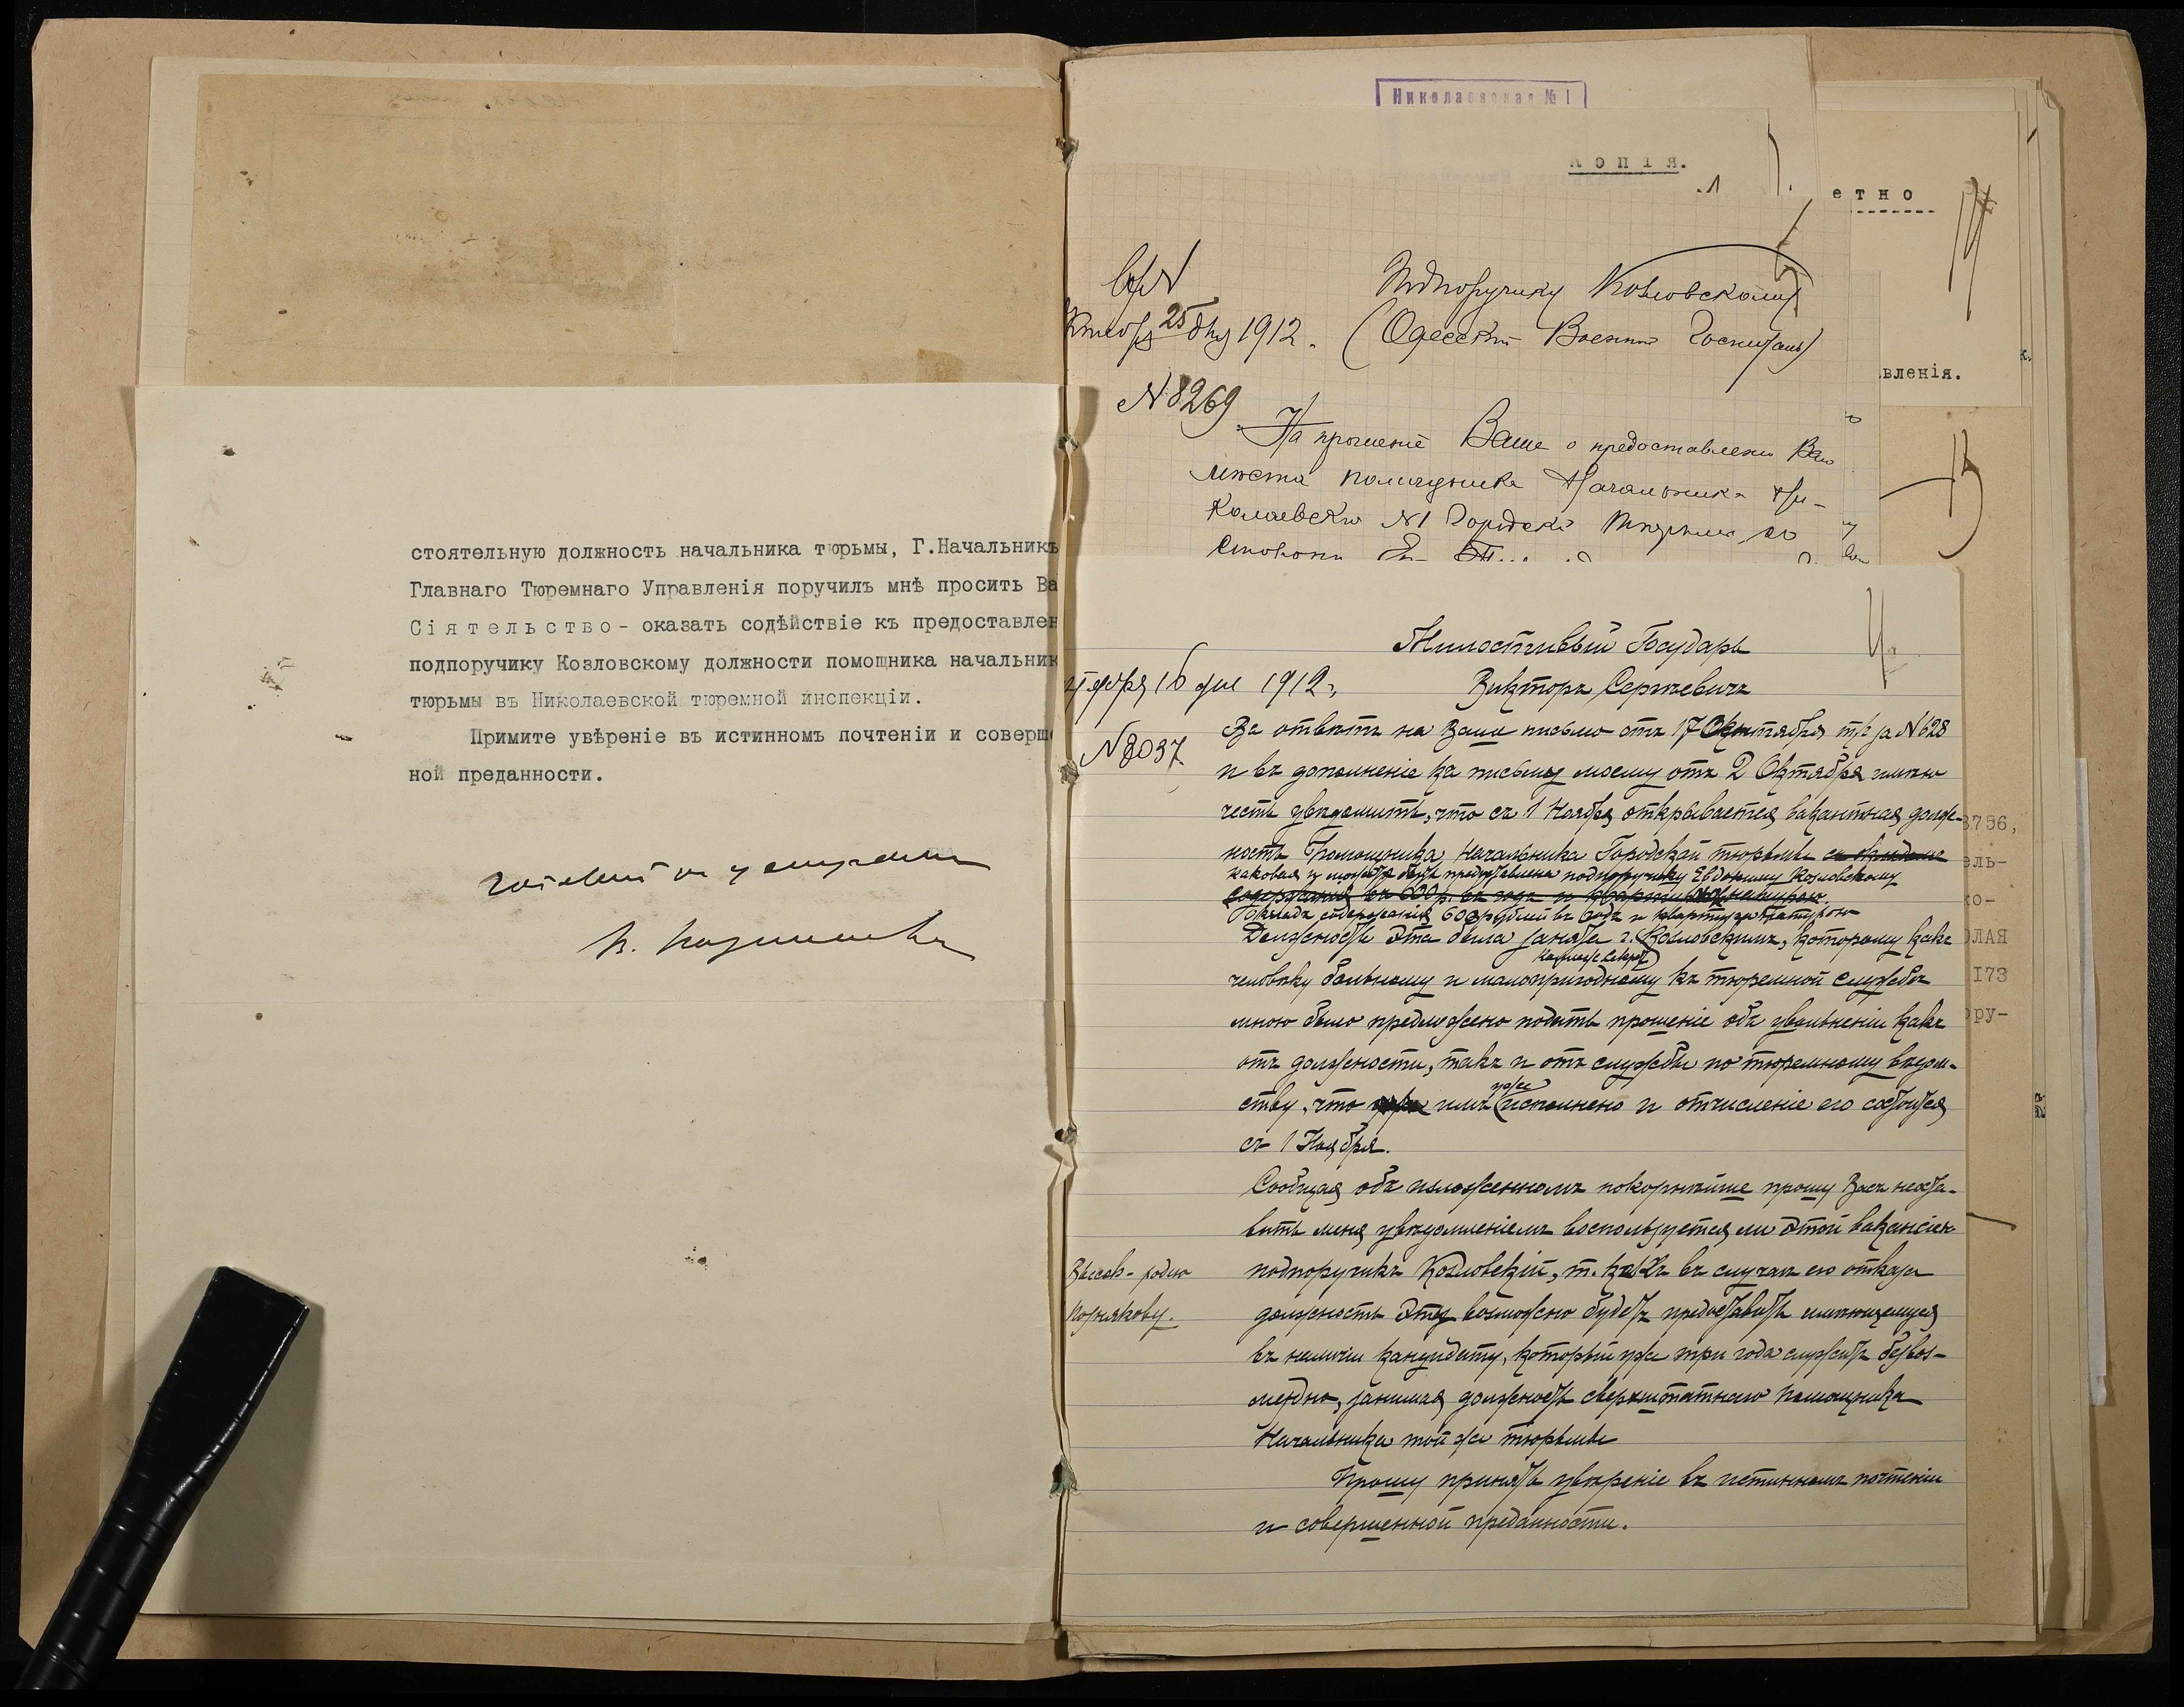 стоятельную должность начальника тюрьмы, Г.Начальникъ
Главнаго Тюремнаго Управленія поручилъ мнѣ просить Ва
Сіятельство- оказать содѣйствіе къ предоставлен
подпоручику Козловскому должности помощника начальник
тюрьмы въ Николаевской тюремной инспекціи.
Примите увѣреніе въ истинномъ почтеніи и соверше
ной преданности.
Николаевская № 1
Копія.
етно
вленія.
25 1912.
Подпоручику Козловскому
(Одесскій Военный Госпиталь)
N 8269
На прошеніе Ваше о предоставленіи Вам
мѣста помощника Начальника Ни-
колаевской N1 Городской тюрьмы, со
стороны
Милостивый Государь
16 дня 1912 г.
Викторъ Сергѣевичъ
N 8037
Въ отвѣтъ на Ваше письмо отъ 17 Октября т/г за N 628
и въ дополненіе къ письму моему отъ 2 Октября имѣю
честь увѣдомить, что съ 1 Ноября открывается вакантная долж-
ность Помощника Начальника Городской тюрьмы съ окладомъ
каковая и можетъ быть предоставлена подпоручику Евдокиму Козловскому
содержанія въ 600 р. въ годъ и квартирой натурою.
Окладъ содержанія 600 рублей въ годъ и квартира натурою
Должность эта была занята г. Козловскимъ, которому какъ
человѣку больному и малопригодному къ тюремной службѣ
мною было предложено подать прошеніе объ увольненіи какъ
отъ должности, такъ и отъ службы по тюремному вѣдом-
ству, что имъ уже исполнено и отчисленіе его состоится
съ 1 Ноября.
Сообщая объ изложенномъ покорнѣйше прошу Васъ неоста-
вить меня увѣдомленіемъ воспользуется ли этой вакансіей
подпоручикъ Козловскій, т. какъ въ случаѣ его отказа
должность эту возможно будетъ предоставить имѣющемуся
въ наличіи кандидату, который уже три года служитъ безвоз-
мездно, занимая должность сверхштатнаго помощника
Начальника той же тюрьмы
Прошу принять увѣреніе въ истинномъ почтеніи
и совершенной преданности.
Высок-родію
Познякову.
3736,
ель-
ко-
ОЛАЯ
173
ру-